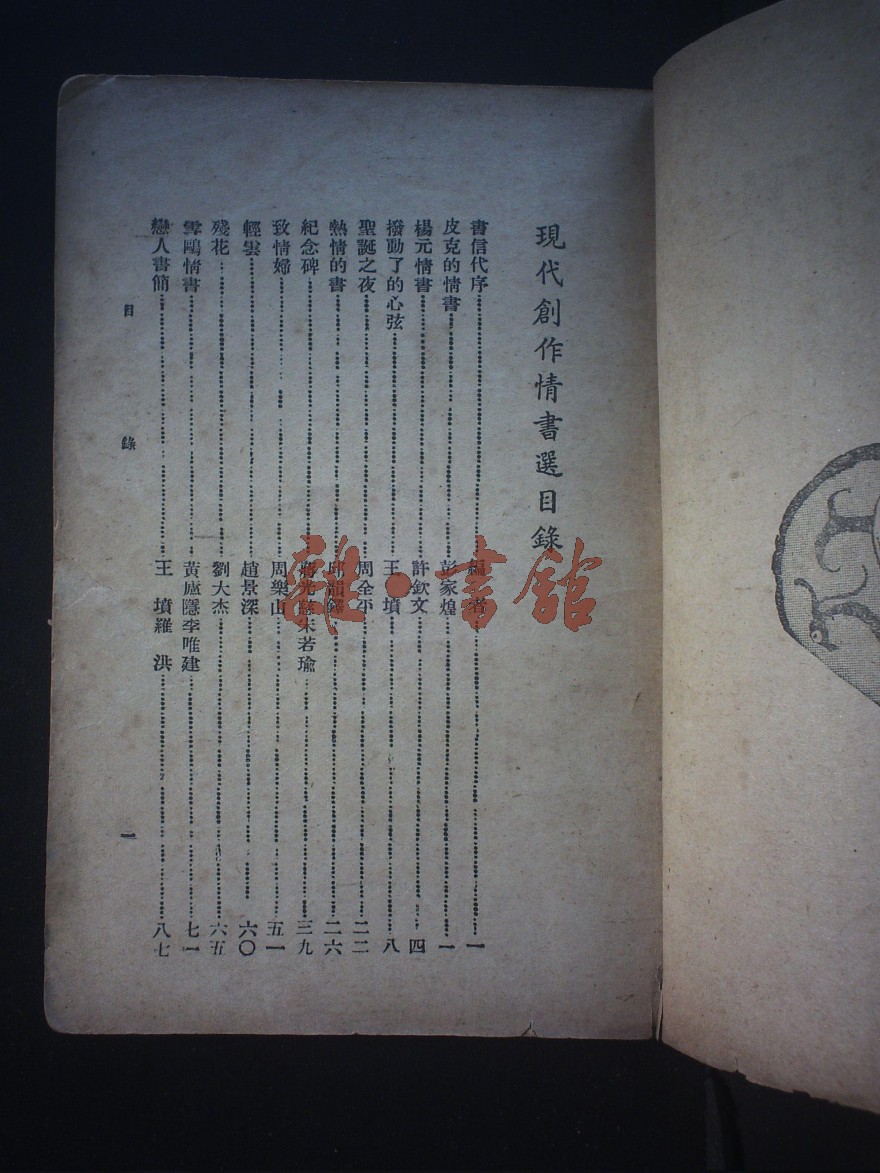 現代創作情書選目錄
書信代序 編者 一
皮克的情書 彭家煌 一
楊元情書 許欽文 四
撥動了的心弦 王墳 八
聖誕之夜 周全平 二二
熱情的書 邱韻鐸 二六
紀念碑 蔣光慈宋若瑜 三九
致情婦 周樂山 五一
輕雲 趙景深 六〇
殘花 劉大杰 六五
雲鷗情書 黃廬隱李唯建 七一
戀人書簡 王墳羅洪 八七
目錄 一
雜·書館